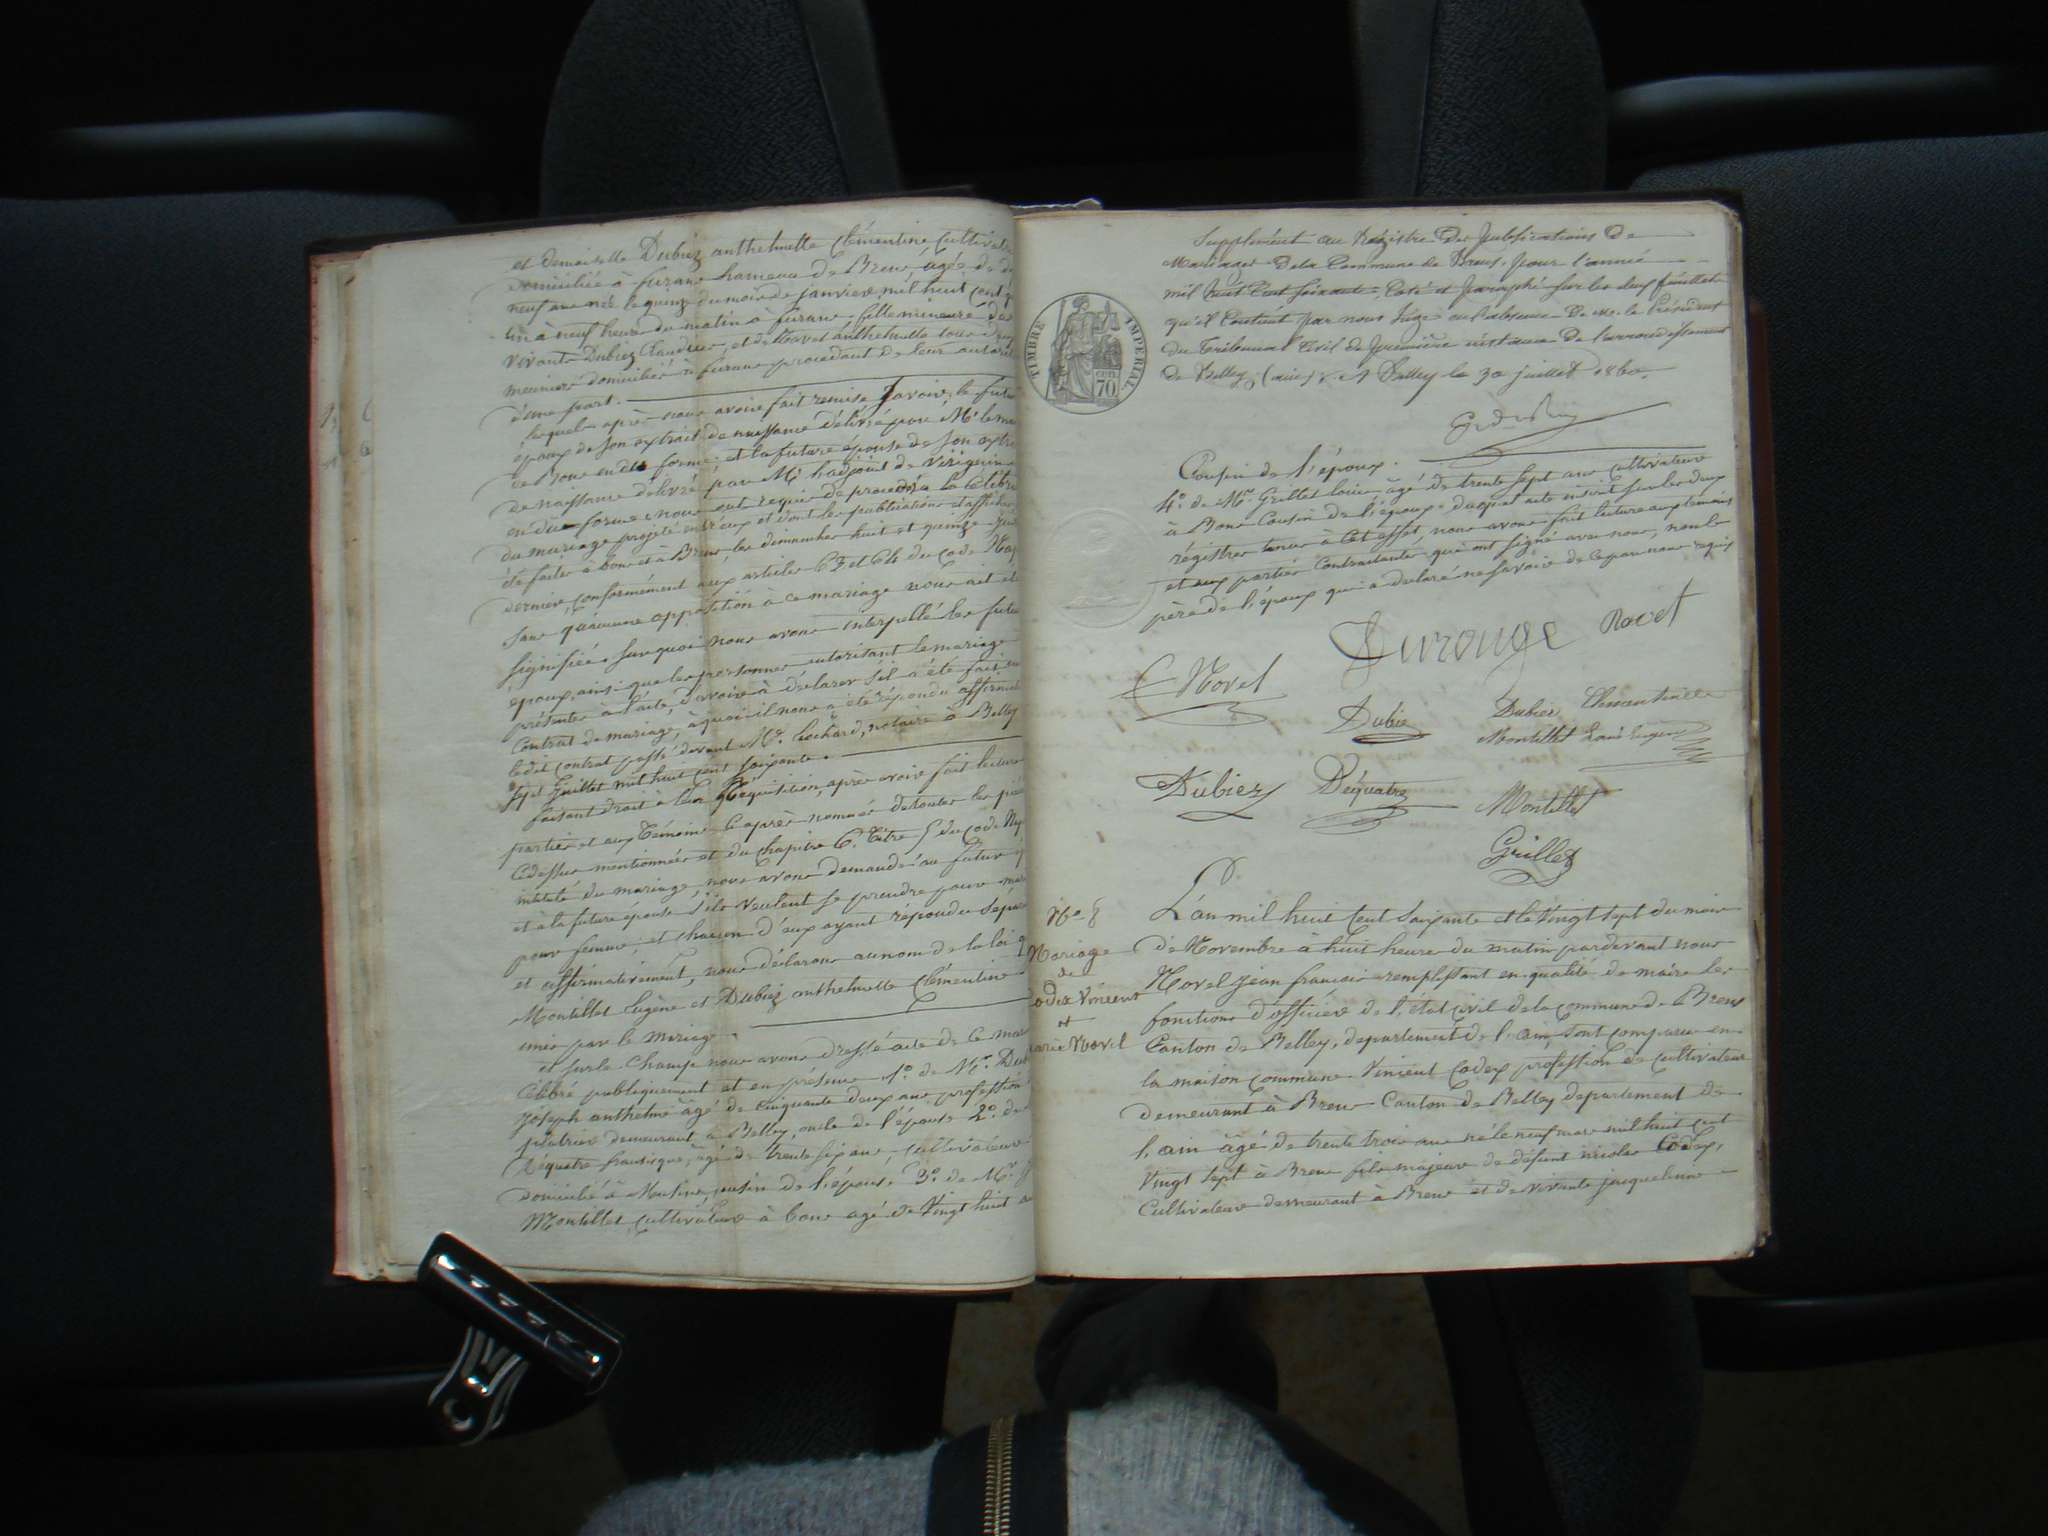 et demoiselle Dubiez anthelmette Clémentine, Cultivat
domiciliée à furans hameau de Brens, agée de
neuf ans née le quinze du mois de janvier mil huit cent
un à neuf heure du matin à furans fille mineure de
vivants Dubiez Claude et de anthelmette tous deux
meuniers domiciliés à furans procédant de leur autorité
d'une part.
lesquels après nous avoir fait remise Savoir, le futur
époux de son extrait de naissance délivré par Mr le mai
de Bons en due forme, et la future épouse de son extr
de naissance délivré par Mr l'adjoint de Virignin
en due forme, nous ont requis de procéder à la célébra
du mariage projeté entr'eux et dont les publications et affiches
été faites à bons et à Brens les dimanches huit et quinze
dernier, conformément aux articles 63 et 64 du code Nap
sans qu'aucune opposition à ce mariage nous ait été
signifiée. sur quoi nous avons interpellé les futurs
époux, ainsi que les personnes autorisant le mariage
présentes à l'acte, d'avoir à déclarer s'il a été fait un
Contrat de mariage, à quoi il nous a été répondu affirmat
ledit contrat passé devant Me. Cochard, notaire à Belley
sept Juillet mil huit cent soixante.
faisant droit à leur Réquisition, après avoir fait lecture
parties et aux Témoins ci après nommés de toutes les piè
cidessus mentionnées et du chapitre 6. Titre 5 du code Nap
intitulé du mariage, nous avons demandé au futur é
et à la future épouse s'ils veulent se prendre pour mari
pour femme, et chacun d'eux ayant répondu sépar
et affirmativement, nous déclarons au nom de la loi q
Montillet Eugène et Dubiez anthelmette Clémentine
unis par le mariage.
et sur le champ nous avons dressé acte de ce mar
Célébré publiquement et en présence 1o. de Mr. Dub
Joseph anthelme âgé de Cinquante deux ans profession
plâtrier demeurant à Belley, oncle de l'épouse 2o. de
Déquatre françisque, âgé de trente six ans, cultivateur
domicilié à cousin de l'épouse 3o. de Mr.
Montillet, cultivateur à bons agé de Vingt huit ans
Supplément au Registre des Publications de
Mariages de la Commune de Brens, pour l'année
mil huit Cent soixante, Coté et Paraphé sur les deux feuillets
qu'il Contient par nous Juge en l'absence de M. le Président
du Tribunal Civil de Première instance de l'arrondissement
de Belley (ain). A Belley le 30 juillet 1860.
TIMBRE IMPERIAL
CENT. 70
Cousin de l'époux.
4o. de Mr. Grillet louis âgé de trente sept ans cultivateur
à Bons Cousin de l'époux duquel acte inscrit sur les deux
régistres tenus à cet effet, nous avons fait lecture aux témoins
et aux parties Contractantes qui ont signé avec nous, non le
père de l'époux qui a déclaré ne savoir de ce par nous requis
Durouge Ravet
Novel
Dubiez Clémentine
Dubiez
Montillet Louis Eugène
Dubiez Déquatre
Montillet
Grillet
No. 5
Mariage
de
Codex Vincent
et
Marie Novel
L'an mil huit Cent Soixante et le Vingt sept du mois
de Novembre à huit heure du matin pardevant nous
Novel jean françois remplissant en qualité de maire les
fonctions d'officier de l'état civil de la commune de Brens
Canton de Belley, département de l'ain, sont comparus en
la maison commune Vincent Codex profession de cultivateur
demeurant à Brens Canton de Belley département de
l'ain âgé de trente trois ans né le neuf mars mil huit cent
Vingt sept à Brens fils majeur de défunt nicolas Codex,
Cultivateur demeurant à Brens et de vivante jacqueline